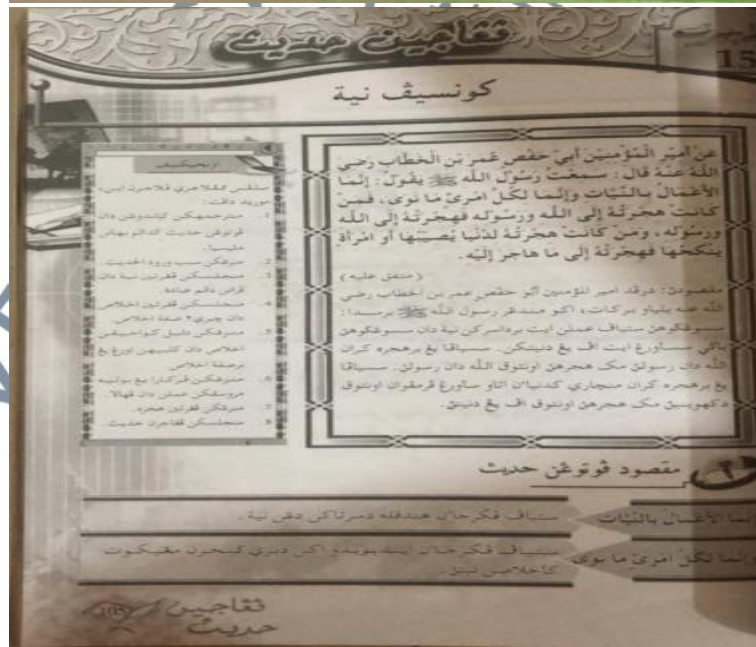 ڤڠاجين حديث
15
كونسيڤ نية
عَنْ أَمِيْرِ الْمُؤْمِنِيْنَ أَبِيْ حَفْصٍ عُمَرَ بْنِ الْخَطَّابِ رَضِيَ
اللَّهُ عَنْهُ قَالَ: سَمِعْتُ رَسُوْلَ اللَّهِ ﷺ يَقُوْلُ: إِنَّمَا
الْأَعْمَالُ بِالنِّيَّاتِ وَإِنَّمَا لِكُلِّ امْرِئٍ مَا نَوَى، فَمَنْ
كَانَتْ هِجْرَتُهُ إِلَى اللَّهِ وَرَسُوْلِهِ فَهِجْرَتُهُ إِلَى اللَّهِ
وَرَسُوْلِهِ، وَمَنْ كَانَتْ هِجْرَتُهُ لِدُنْيَا يُصِيْبُهَا أَوِ امْرَأَةٍ
يَنْكِحُهَا فَهِجْرَتُهُ إِلَى مَا هَاجَرَ إِلَيْهِ.
(متفق عليه)
مقصودڽ: درڤد امير المؤمنين أبو حفص عمر بن الخطاب رضي
الله عنه بلياو بركات، اكو مندڠر رسول الله ﷺ برسبدا:
سسوڠݢوهڽ ستياڤ عملن ايت برداسركن نية دان سسوڠݢوهڽ
باݢي سساورڠ ايت اڤ يڠ دنيتكن. سسياڤا يڠ برهجره كران
الله دان رسولڽ مك هجرهڽ اونتوق الله دان رسولڽ. سسياڤا
يڠ برهجره كران منچاري كدنياءن اتاو ساورڠ ڤرمڤوان اونتوق
دكهوينيڽ مك هجرهڽ اونتوق اڤ يڠ دنيتڽ.
اوبجيكتيف
سلڤس ممڤلاجري ڤلاجرن اين،
موريد داڤت:
1. منترجمهكن كسلوروهن دان
ڤوتوڠن حديث كدالم بهاس
مليسيا.
2. منرڠكن سبب ورود الحديث.
3. منجلسكن ڤڠرتين نية دان
ڤرانن دالم عبادة.
4. منجلسكن ڤڠرتين اخلاص
دان چيري٢ صفة اخلاص.
5. منرڠكن دليل كواجيڤن
اخلاص دان كلبيهن اورڠ يڠ
برصفة اخلاص.
6. منرڠكن ڤركارا يڠ بوليه
مروسقكن عملن دان ڤهالا.
7. منرڠكن ڤڠرتين هجره.
8. منجلسكن ڤڠاجرن حديث.
٢ مقصود ڤوتوڠن حديث
إنما الأعمال بالنيات
ستياڤ ڤكرجاءن هندقله دسرتاكن دڠن نية.
وإنما لكل امرئ ما نوى
ستياڤ ڤكرجاءن ايت
اكن دبري ݢنجرن مڠيكوت
كاخلاصن نيتڽ.
ڤڠاجين
حديث
105